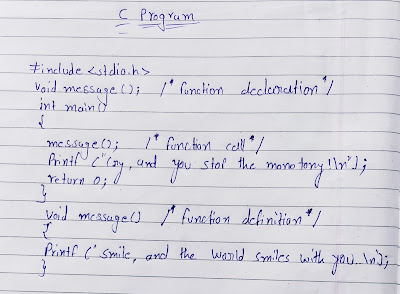 C Program
#include <stdio.h>
void message(); /* function declaration */
int main()
{
message(); /* function call */
Printf ("Cry, and you stop the monotony!\n");
return 0;
}
void message() /* function definition */
{
Printf (" smile, and the world smiles with you..\n");
}